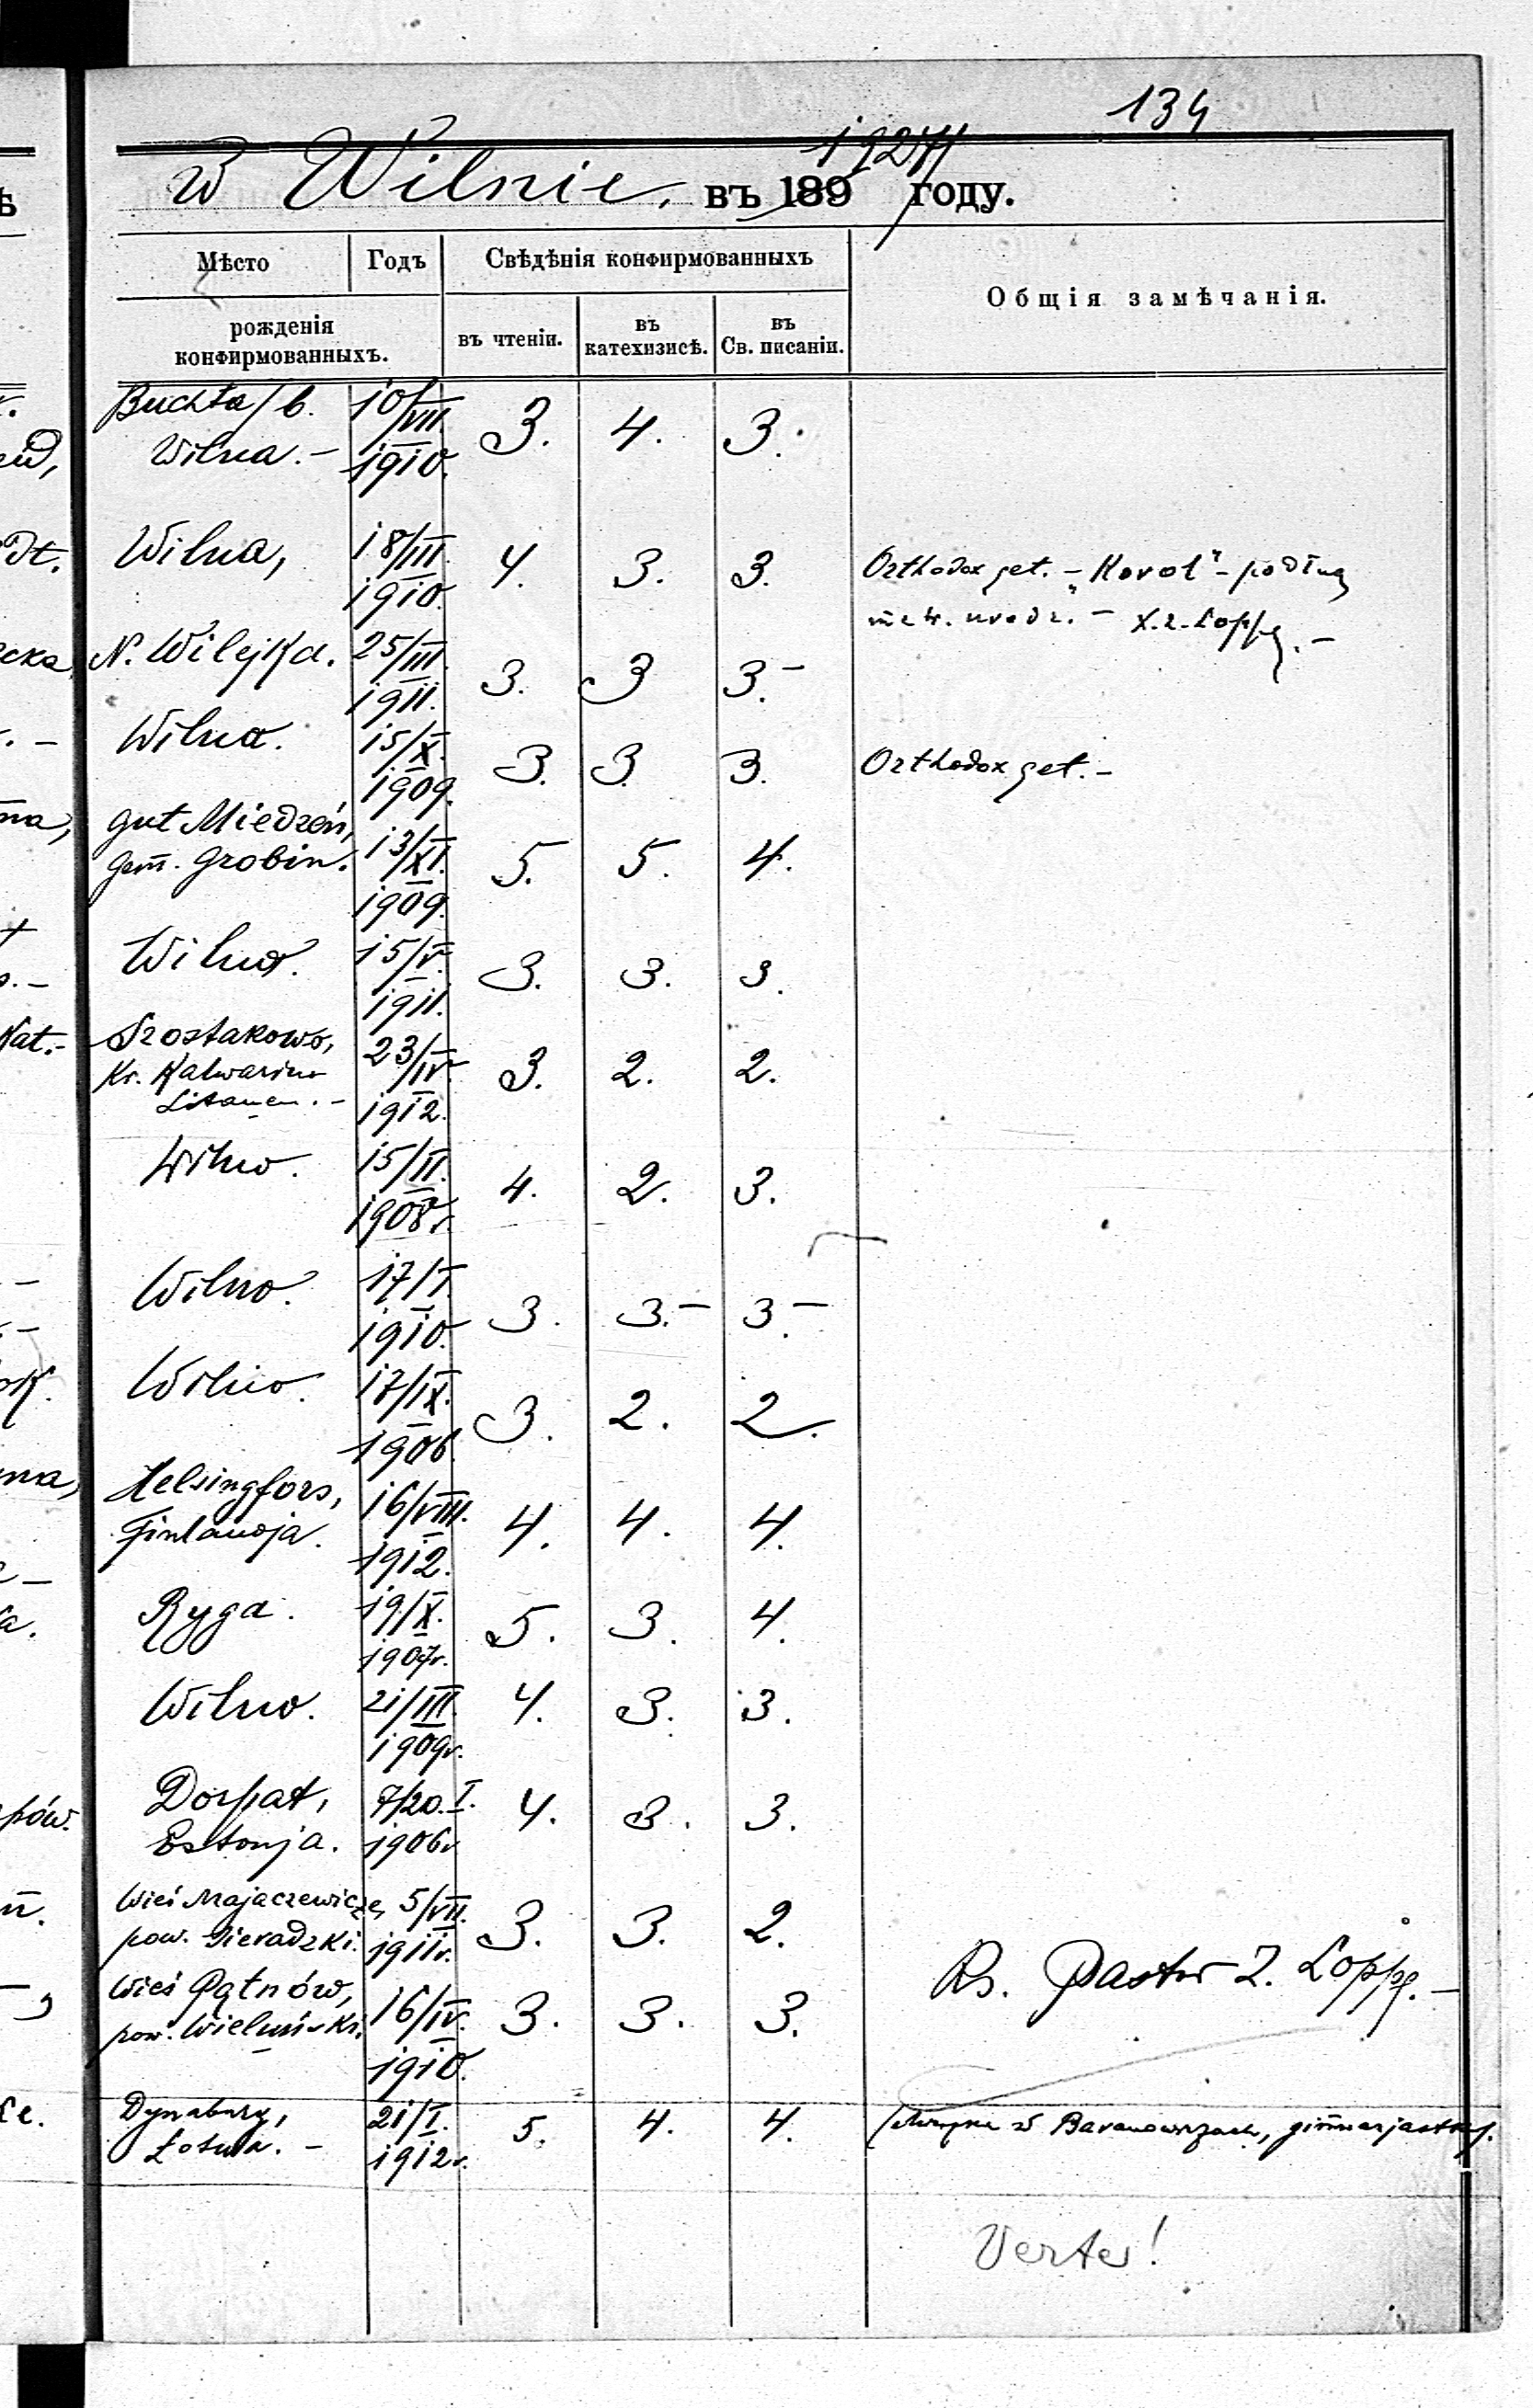 134
w Wilnie. въ 189 1927/ году.
Мѣсто
Годъ
Свѣдѣнія конфирмованныхъ
Общія замѣчанія.
рожденія
конфирмованныхъ.
въ чтеніи.
въ
катехизисѣ.
въ
Св. писаніи.
Buchta / b. 10/VII.
Wilna. – 1910. 3. 4. 3.
Wilna, 18/III. 4. 3. 3. Orthodox get. – „Korol" – podług
1910. metr. urodz. – X. Z. Loppe. –
N. Wilejka. 25/III. 3. 3 3. –
1911.
Wilna. 15/X. 3. 3. 3. Orthodox get. –
1909.
gut Miedzeń, 13/XI. 5. 5. 4.
Gem. Grobin. 1909.
Wilno. 15/V. 3. 3. 3.
1911.
Szostakowo, 23/IV. 3. 2. 2.
Kr. Kalwarine
Litauen. – 1912.
Wilno. 15/II. 4. 2. 3.
1908 r.
Wilno. 17/I. 3. 3. – 3. –
1910.
Wilno. 17/IX. 3. 2. 2.
1906.
Helsingfors, 16/VIII. 4. 4. 4.
Finlandja. 1912.
Ryga. 19/X. 5. 3. 4.
1907 r.
Wilno. 21/III. 4. 3. 3.
1909 r.
Dorpat, 7/20. I. 4. 3. 3.
Estonja. 1906 r
Wieś Majaczewicze, 5/VII. 3. 3. 2.
pow. Sieradzki. 1911 r.
Ks. Pastor Z. Loppe. –
Wieś Pątnów, 16/IV. 3. 3. 3.
pow. Wieluński. 1910.
Dynaburg, 21/I. 5. 4. 4. w Baranowiczach, gimnazjastka).
Łotwa. – 1912 r.
Verte!